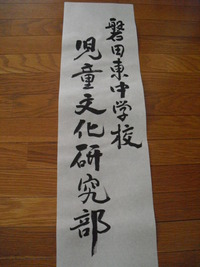 磐田東中学校
児童文化研究部